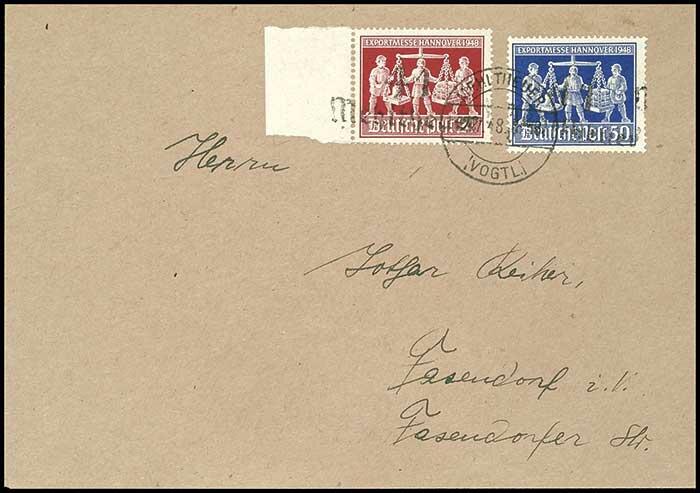 EXPORTMESSE HANNOVER 1948
EXPORTMESSE HANNOVER 1948
Deutsche Post
Deutsche Post 50
(VOGTL.)
Herrn
Lothar
Fasendorf i. V.
Fasendorfer Str.